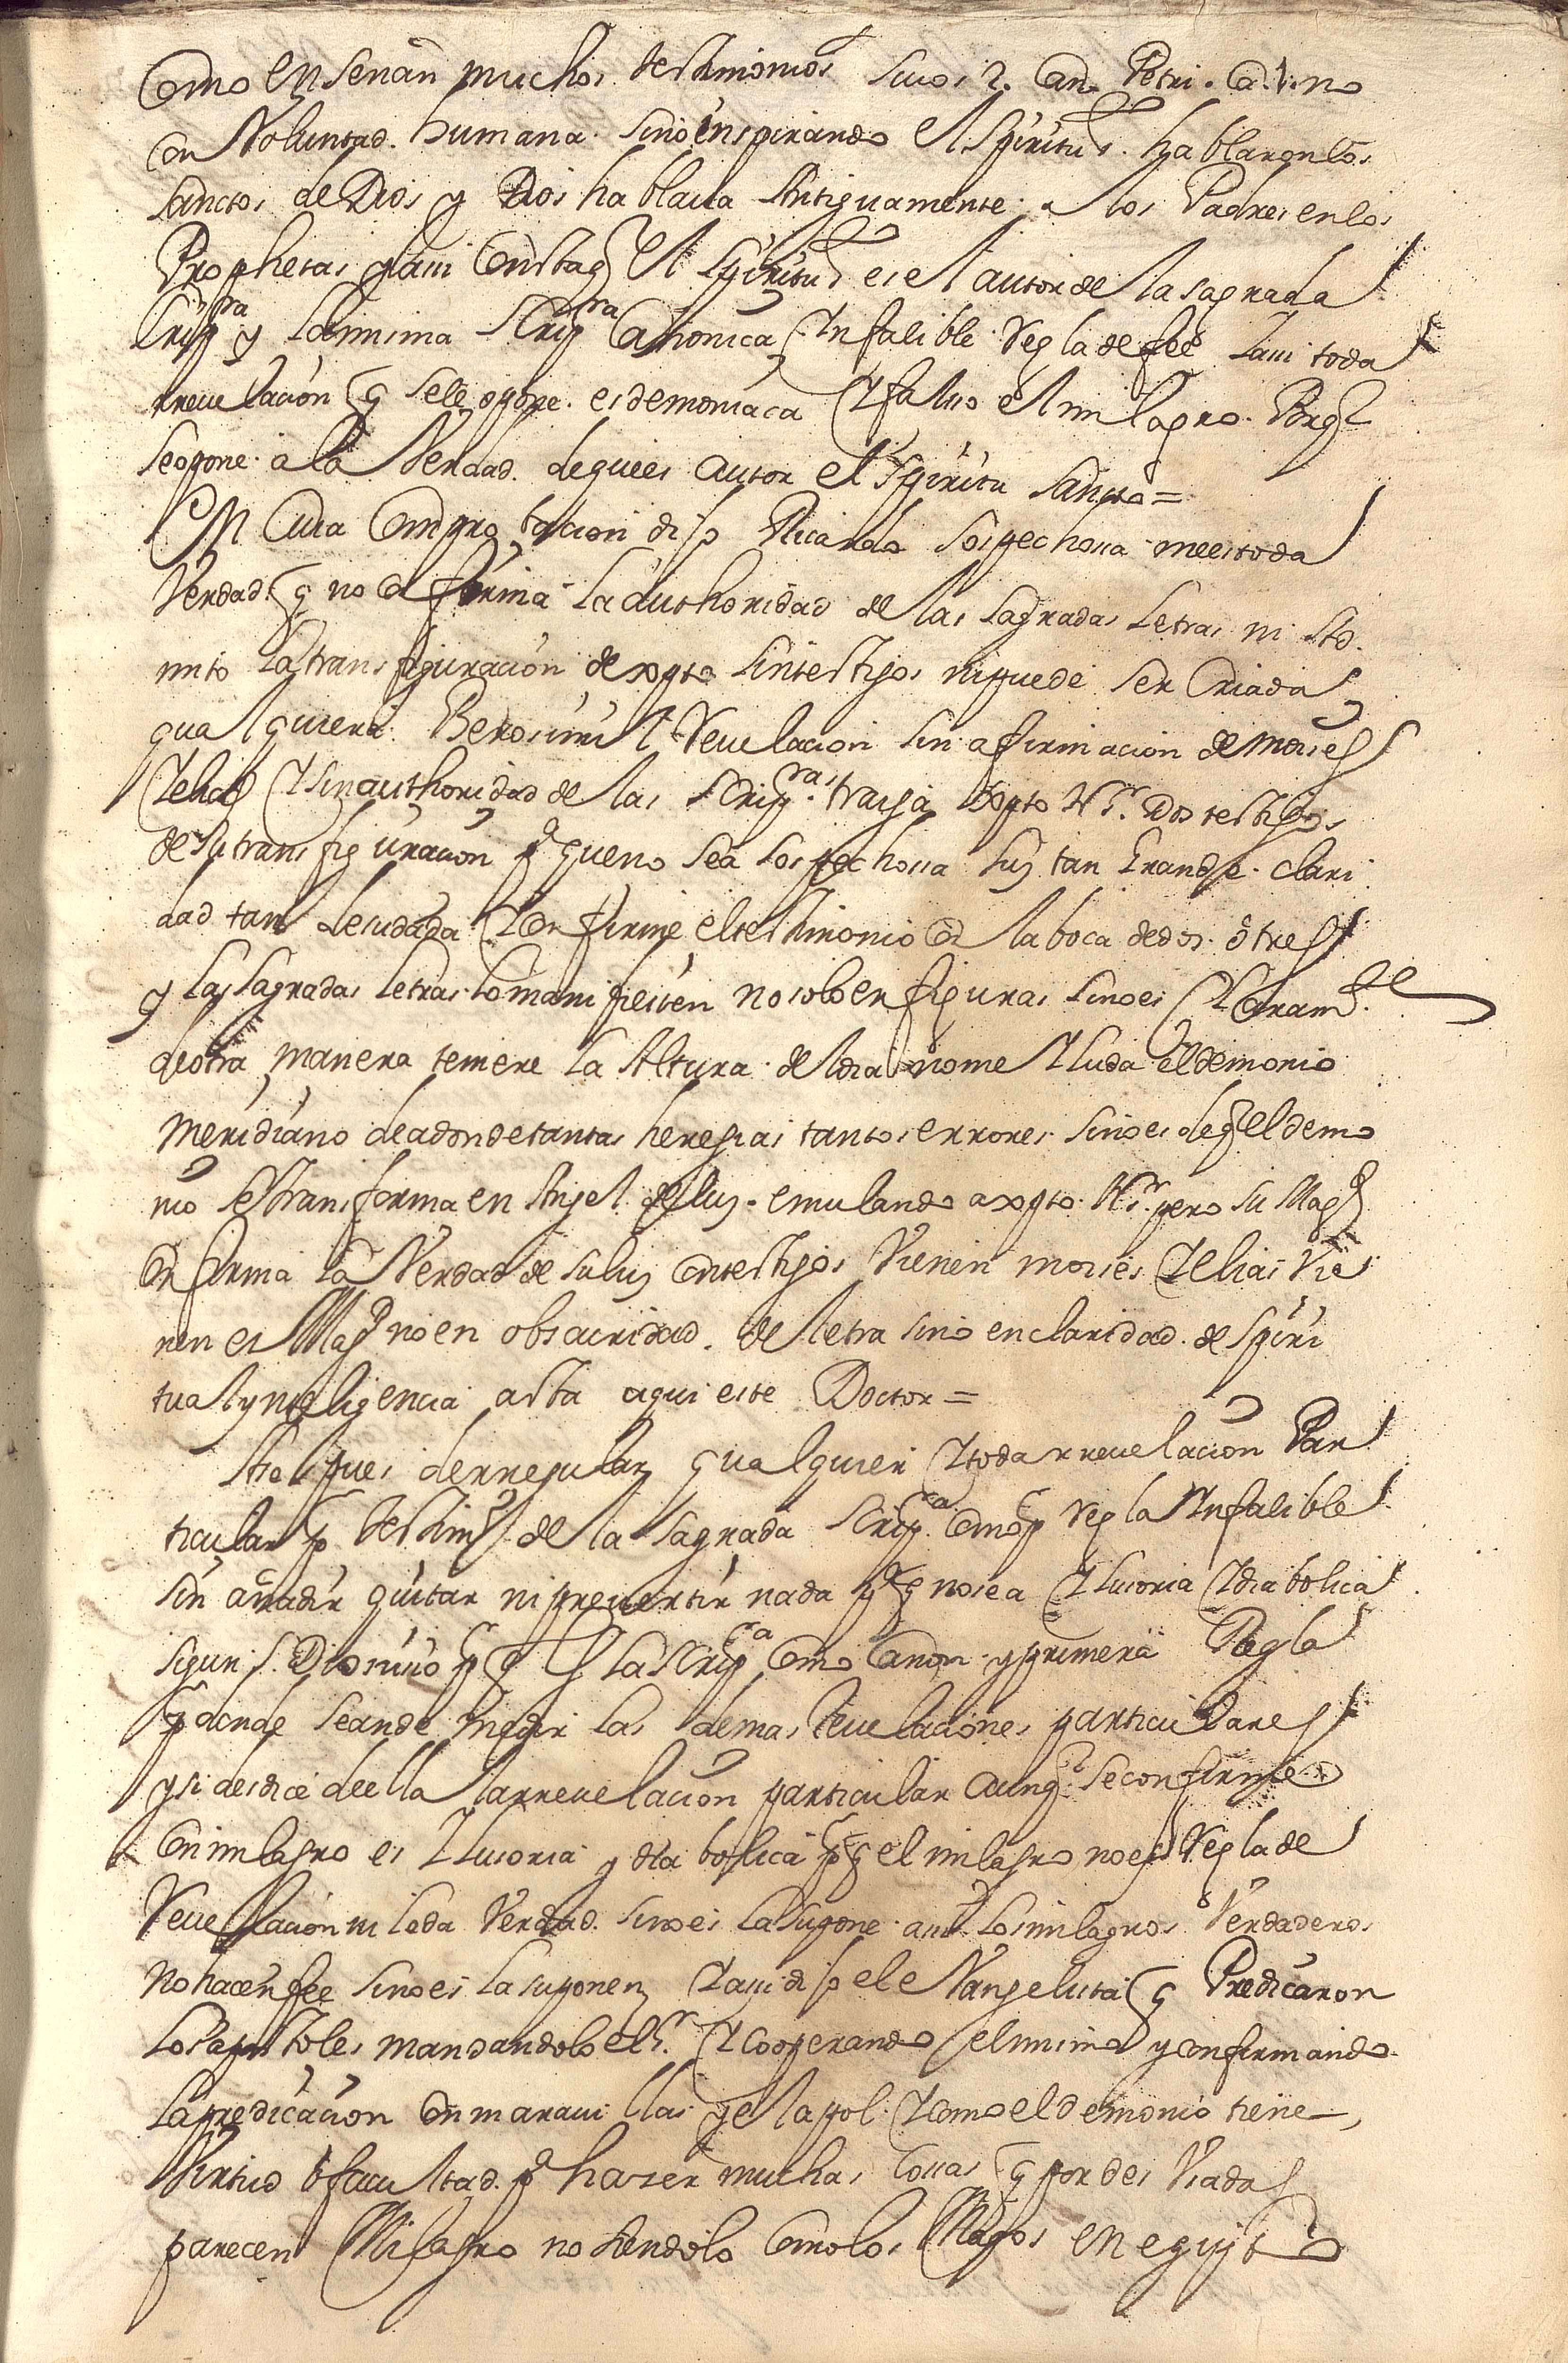 Como enseñan muchos testimonios suios 2. Can. Petri. Ca. 1. no
con Voluntad. humana. sino inspirando el spiritu s. hablaron los
sanctos de Dios y Dios hablaua Antiguamente a los Padres en los
Prophetas y asi Consta q el spiritu s es el autor de la sagrada
scripra y la misma scripra Canonica, Infalible Regla de fee y asi toda
rreuelacion q se le opone. es demoniaca y falsso el milagro. Porq
se opone a la Verdad. de quien es autor el spiritu sancto =
En Cuia Comprobacion disse Ricardo sospechossa me es toda
Verdad q no confirma la authoridad de las sagradas Letras ni Ad
mito la transfiguracion de xpto sin testigos ni puede ser Criada
qualquiera. Berosimil Reuelacion sin afirmacion de moises
y elias y sin authoridad de las scripras. traiga xpto Nr. Dos testigos
de su transfiguracion pa que no sea sospechossa luz tan Grande. clari
dad tan y confirme el testimonio con la boca de dos. o tres
y las sagradas letras lo manifiesten no solo en figuras sino es Claramte
de otra manera temere la Altura del dia no me Iluda el demonio
meridiano de adonde tantas heregias tantos errores sino es de q el demo
nio se transforma en Angel de luz. emulando a xpto Nr. pero su Magd
confirma la Verdad de su luz con testigos Vienen moises y elias Vie
nen en Magd no en obscuridad. de letra sino en claridad. de spiri
tual ynteligencia asta aqui este Doctor =
Ase pues de rregular qualquier y toda rreuelacion Par
ticular p testimos. de la sagrada scripra. como p regla Infalible
sin añadir quitar ni preuertir nada pa q no sea Ilusoria y diabolica
sigun s. Dionisio p q es la scripra como Canon y primera Regla
p donde se an de medir las demas Reuelaciones particulares
y si desdice de ella la rreuelacion particular aunq se confirme
con milagro es Ilusoria y diabolica p q el milagro no es Regla de
Reuelacion ni le da Verdad. sino es la supone asi los milagros Verdaderos
no hacen fee sino es la suponen, y asi disse el eVangelista q Predicaron
los apostoles mandandolo el sr. y cooperando el mismo y confirmando
la predicacion con marauillas y el apol. y como el demonio tiene
Virtud o facultad. pa hazer muchas cossas q por des Vsadas
parecen Milagro no siendolo como los Magos en egipto